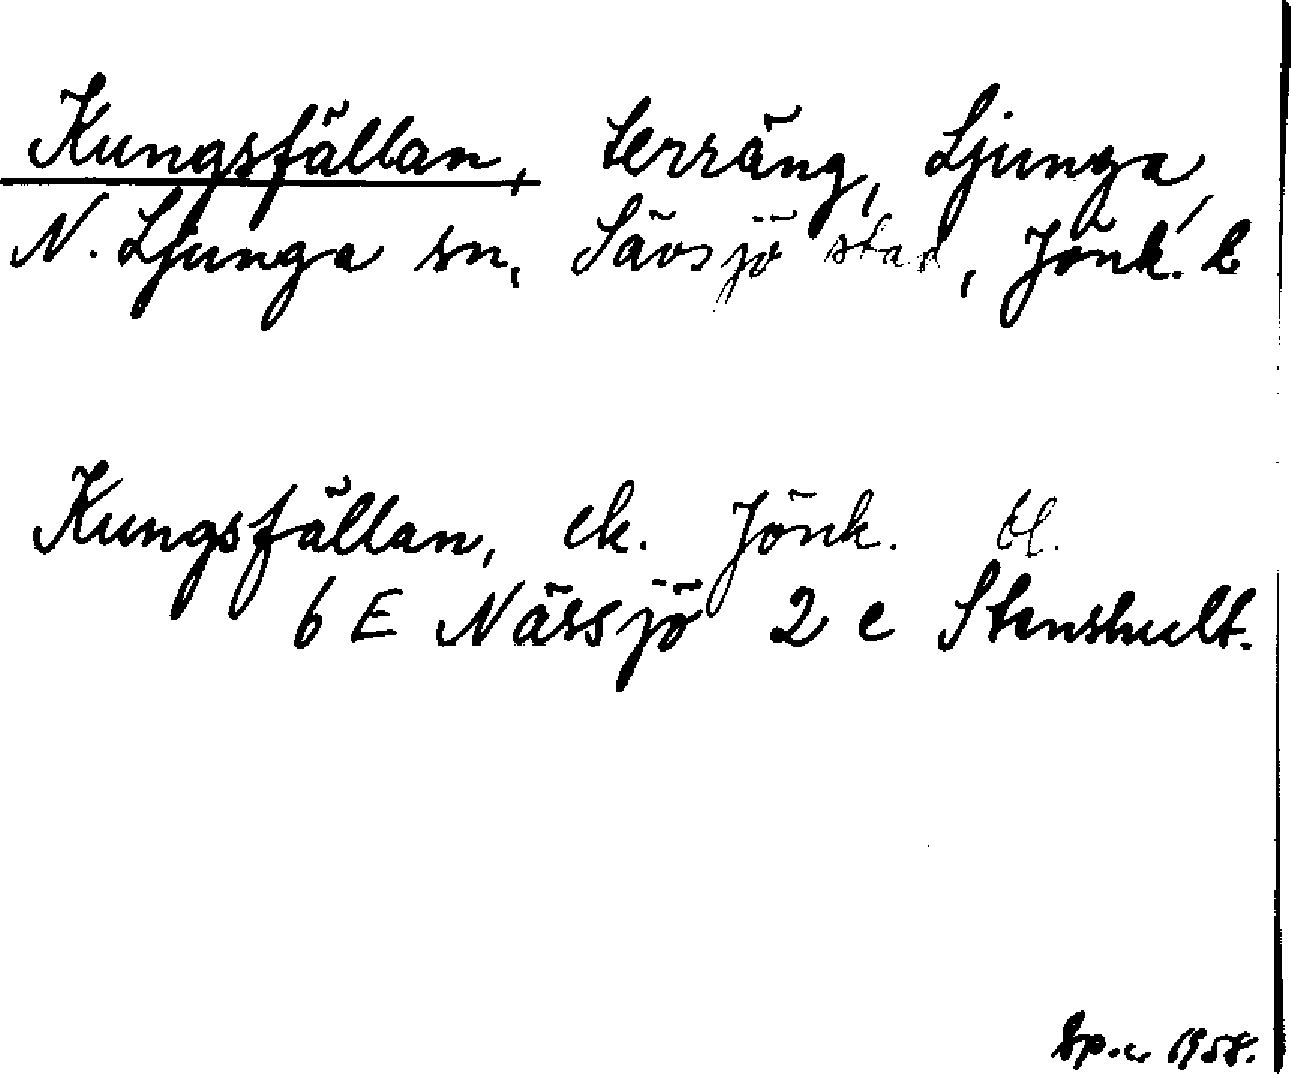 Kungsfällan, terräng, Ljunga,
N. Ljunga sn, Sävsjö stad, Jönk. l
Kungsfällan, ek. Jönk. bl.
6 E Nässjö 2 e Stenshult.
1958.